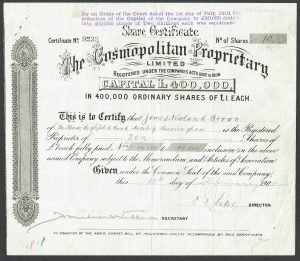 By an Order of the Court dated the 1st of July, 1913, the
reduction of the Capital of the Company to £40,000 divided
into 400,000 shares of Two Shillings each was
Share Certificate
Certificate No. 9233
No of Shares 10
The Cosmopolitan Proprietary
LIMITED
REGISTERED UNDER THE COMPANIES ACTS 1862 TO 1890
CAPITAL £400,000,
IN 400,000 ORDINARY SHARES OF £1. EACH.
This is to Certify that James Brown
of is the Registered
Proprietor of Ten Shares
of £1 each fully paid Nos. inclusive in the above
named Company subject to the Memorandum and Articles of Association
Given under the Common Seal of the said Company;
this day of February 190
SECRETARY
NO TRANSFER OF THE ABOVE SHARES WILL BE RECOGNISED UNLESS ACCOMPANIED BY THIS CERTIFICATE